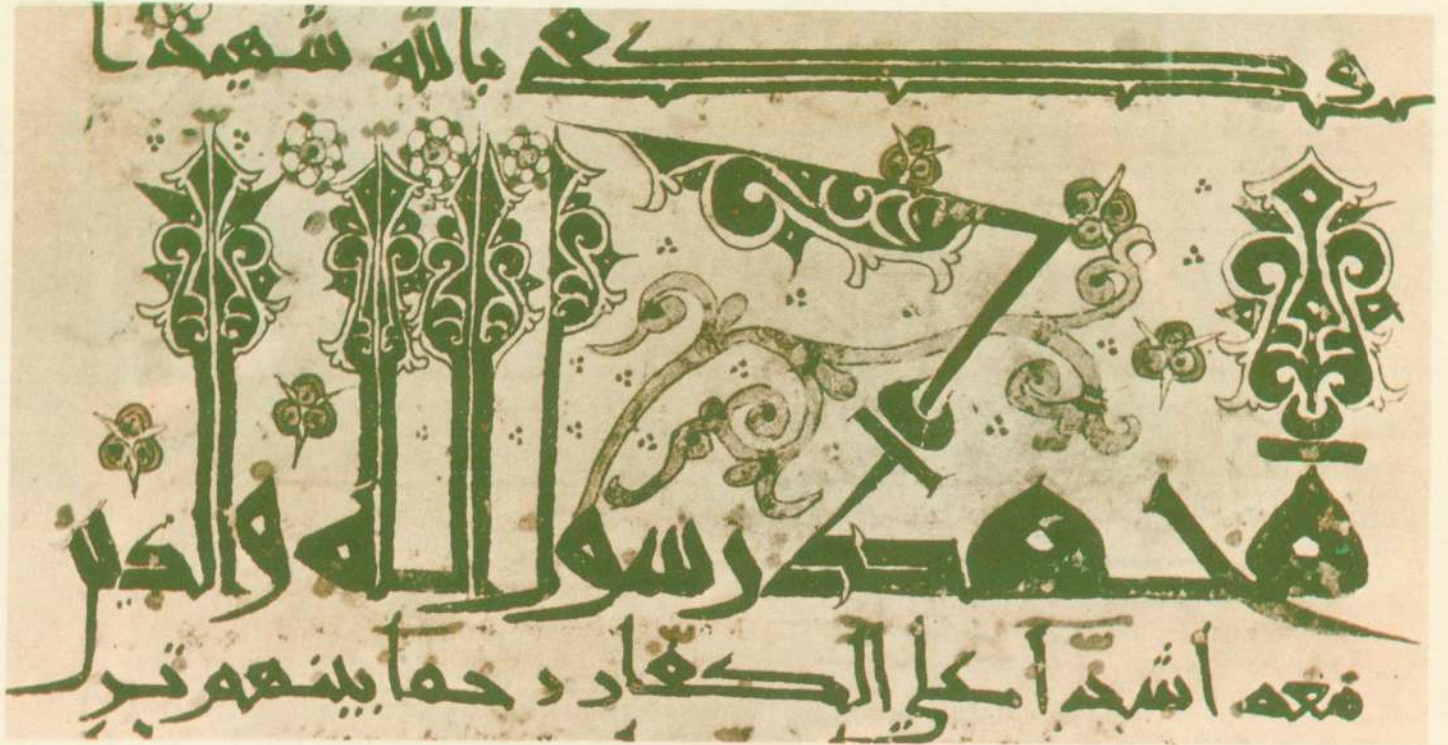 وكفى بالله شهيدا
محمد رسول الله والذين
معه اشدآ على الكفار رحمآ بينهم تر